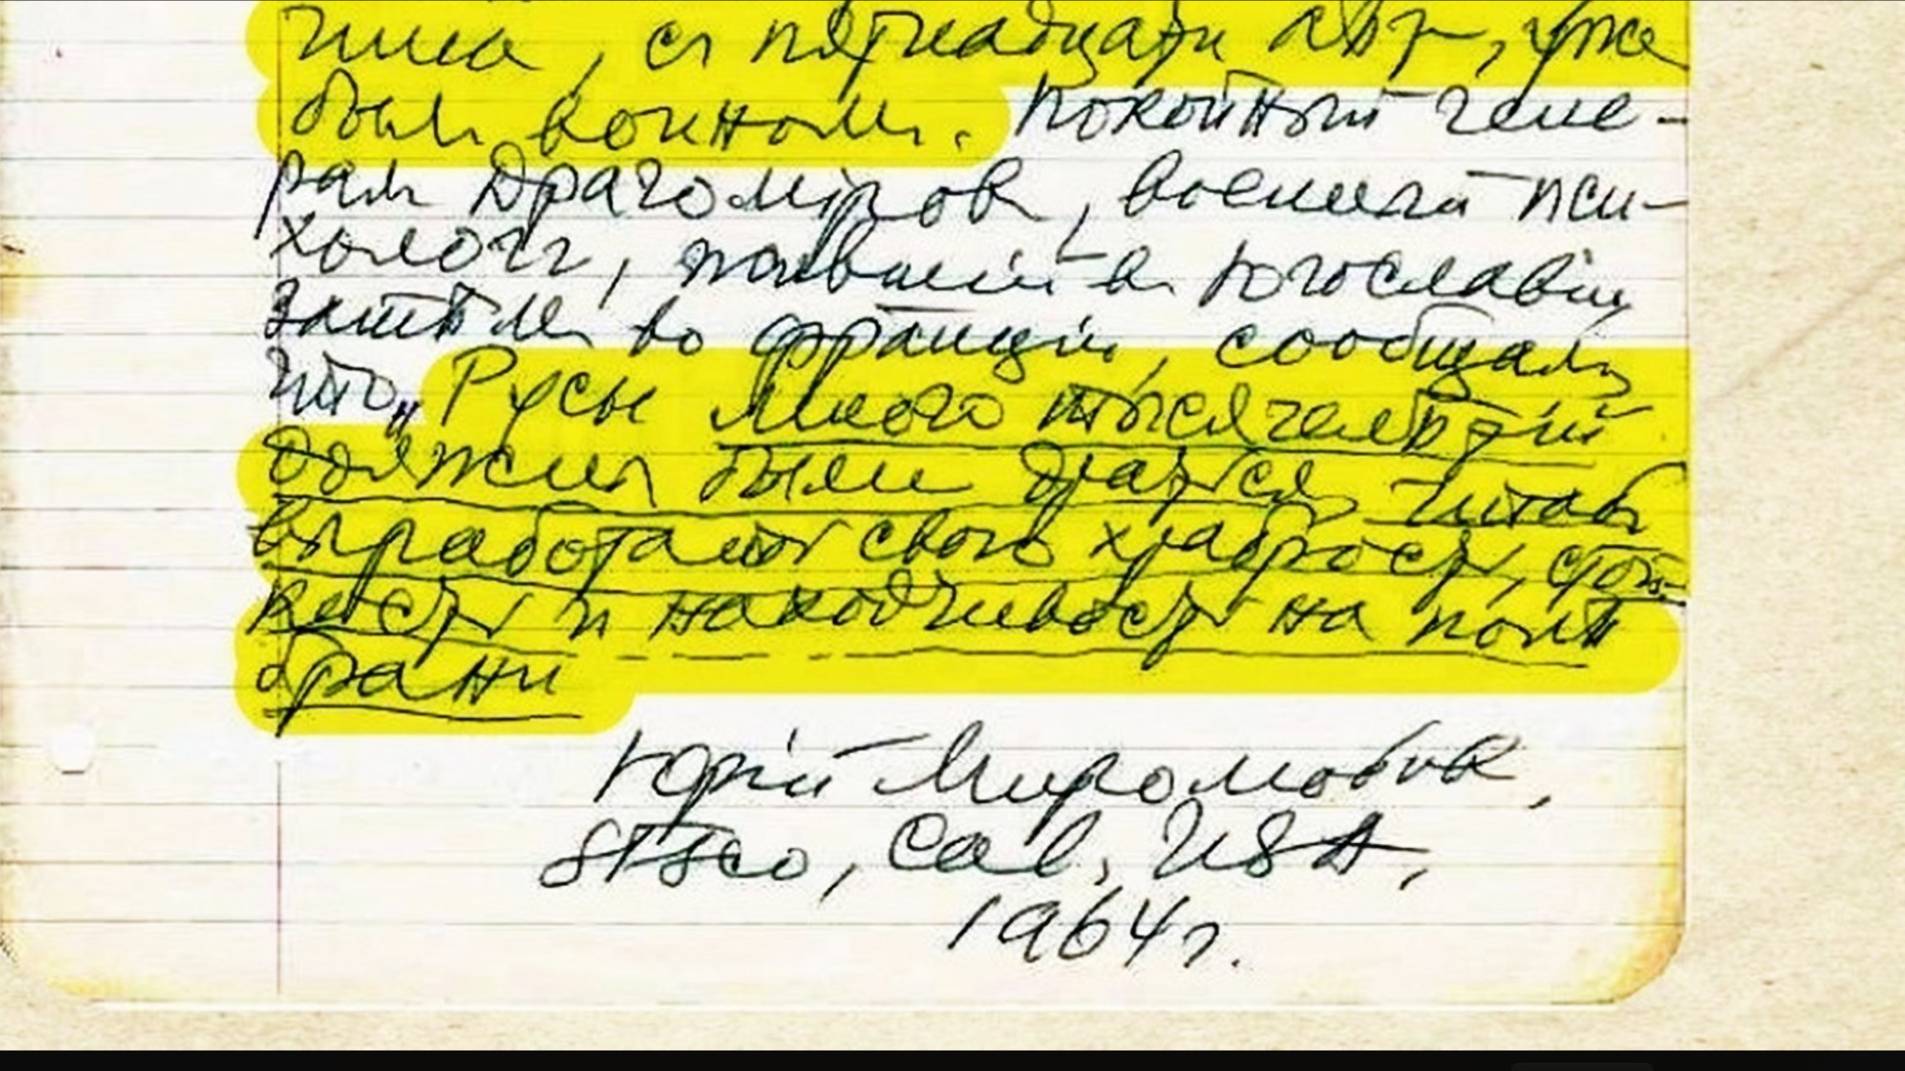 чина, съ пятнадцати лѣтъ, уже
былъ воиномъ. Покойный гене-
ралъ Драгомiровъ, военный пси-
хологъ, жившiй въ Югославiи,
затѣмъ во Францiи, сообщалъ,
что „Русы много тысячелѣтiй
должны были драться, чтобъ
выработать свою храбрость, стой-
кость и находчивость на полѣ
брани
Юрiй Миролюбовъ,
Cal, USA,
1964 г.